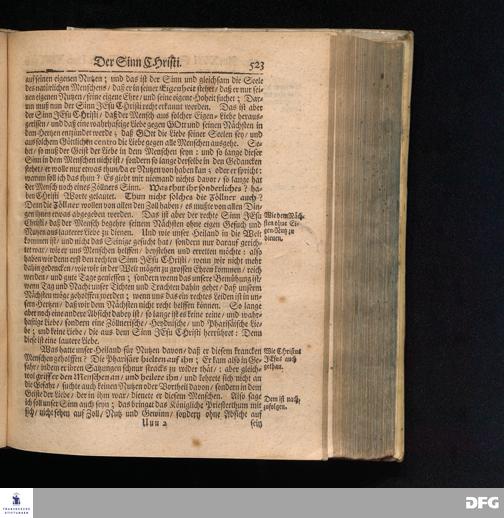 Der Sinn CHristi. 523
auf seinen eigenen Nutzen; und das ist der Sinn und gleichsam die Seele
des natürlichen Menschens/ daß er in seiner Eigenheit stehet/ daß er nur sei-
nen eigenen Nutzen/ seine eigene Ehre/ und seine eigene Hoheit suchet; Dar-
um muß nun der Sinn JEsu Christi recht erkannt worden. Das ist aber
der Sinn JEsu Christi/ daß der Mensch aus solcher Eigen-Liebe heraus-
gerissen/ und daß eine wahrhaftige Liebe gegen GOtt und seinen Nächsten in
den Hertzen entzündet werde; daß GOtt die Liebe seiner Seelen sey/ und
aus solchem Göttlichen centro die Liebe gegen alle Menschen ausgehe. Se-
het/ so muß der Geist der Liebe in dem Menschen seyn: und so lange dieser
Sinn in dem Menschen nicht ist/ sondern so lange derselbe in den Gedancken
stehet/ er wolle nur etwas thun/ da er Nutzen von haben kan; oder er spricht:
warum soll ich das thun? Es giebt mir niemand nichts davor/ so lange hat
der Mensch noch eines Zöllners Sinn. Was thut ihr sonderliches? ha-
ben Christi Worte gelautet. Thun nicht solches die Zöllner auch?
Denn die Zöllner wollen von allen den Zoll haben/ es mußte von allen Din-
gen ihnen etwas abgegeben werden. Das ist aber der rechte Sinn JEsu
Christi/ daß der Mensch begehre seinem Nächsten ohne eigen Gesuch und
Nutzen aus lauterer Liebe zu dienen. Und wie unser Heiland in die Welt
kommen ist/ und nicht das Seinige gesucht hat/ sondern nur darauf gerich-
tet war/ wie er uns Menschen helffen/ beystehen und erretten möchte: also
haben wir denn erst den rechten Sinn JEsu Christi/ wenn wir nicht mehr
dahin gedencken/ wie wir in der Welt mögen zu grossen Ehren kommen/ reich
werden/ und gute Tage geniessen; sondern wenn das unsere Bemühung ist/
wenn Tag und Nacht unser Dichten und Trachten dahin gehet/ daß unserm
Nächsten möge geholffen werden; wenn uns das ein rechtes Leiden ist in un-
sern Hertzen/ daß wir dem Nächsten nicht recht helffen können. So lange
aber noch eine andere Absicht dabey ist/ so lange ist es keine reine/ und wahr-
haftige Liebe/ sondern eine Zöllnerische/ Heydnische/ und Pharisäische Lie-
be; und keine Liebe/ die aus dem Sinn JEsu Christi herrühret: Denn
diese ist eine lautere Liebe.
Was hatte unser Heiland für Nutzen davon/ daß er diesem krancken
Menschen geholffen? Die Pharisäer hielten auf ihn; Er kam also in Ge-
fahr/ indem er ihren Satzungen schnur stracks zu wider that/: aber gleich-
wol griff er den Menschen an/ und heilete ihn/ und kehrete sich nicht an
die Gefahr/ suchte auch keinen Nutzen oder Vortheil davon/ sondern in dem
Geiste der Liebe/ der in ihm war/ dienete er diesem Menschen. Also sage
ich soll unser Sinn auch seyn; das bringet das Königliche Priesterthum mit
sich/ nicht sehen auf Zoll/ Nutz und Gewinn/ sondern ohne Absicht auf
Uuu 2 sein
Wie dem Näch-
sten ohne Ei-
gen-Nutz zu
dienen.
Wie Christus
JEsus auch
gethan.
Dem ist nach-
zufolgen.
FRANCKESCHE
STIFTUNGEN
DFG